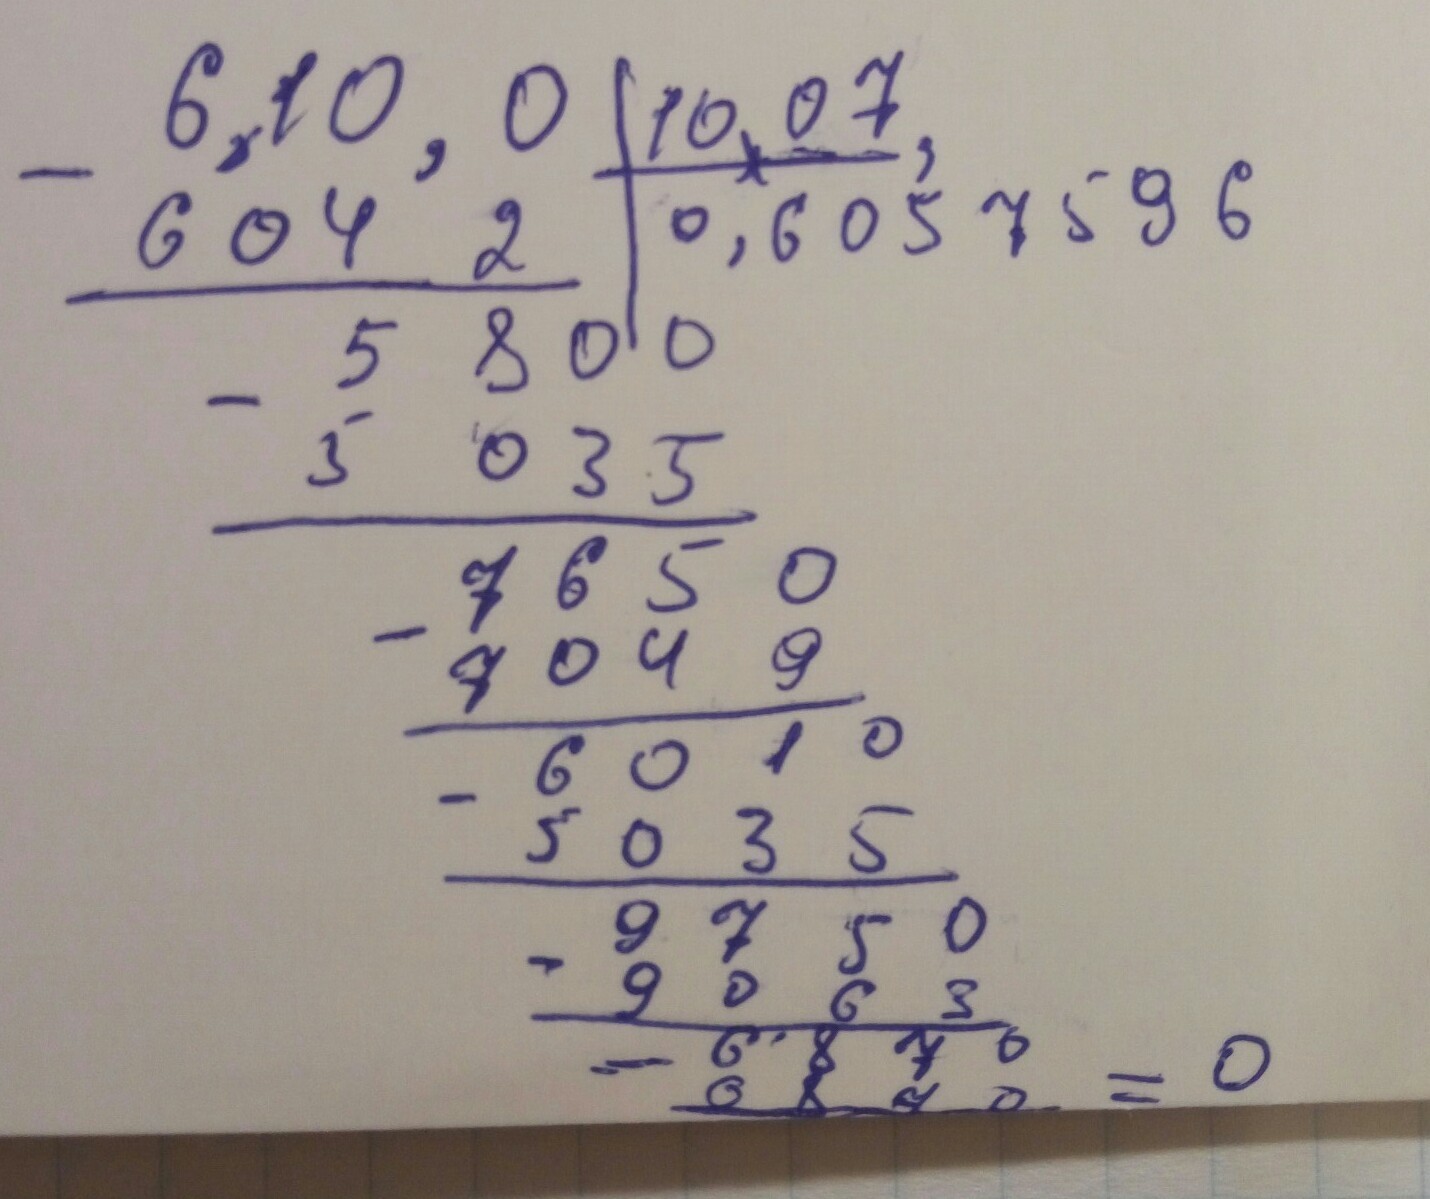 6,10,0 10,07,
- 6042 0,6057596
5800
- 5035
7650
- 7049
6010
- 5035
9750
- 9063
6870
- 6870 = 0